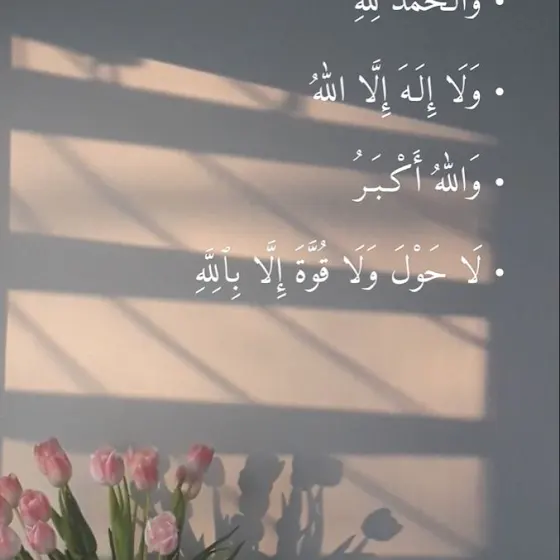 • وَالْحَمْدُ لِلَّهِ
• وَلَا إِلَـهَ إِلَّا اللهُ
• وَاللهُ أَكْـبَـرُ
• لَا حَوْلَ وَلَا قُوَّةَ إِلَّا بِٱللَّهِ